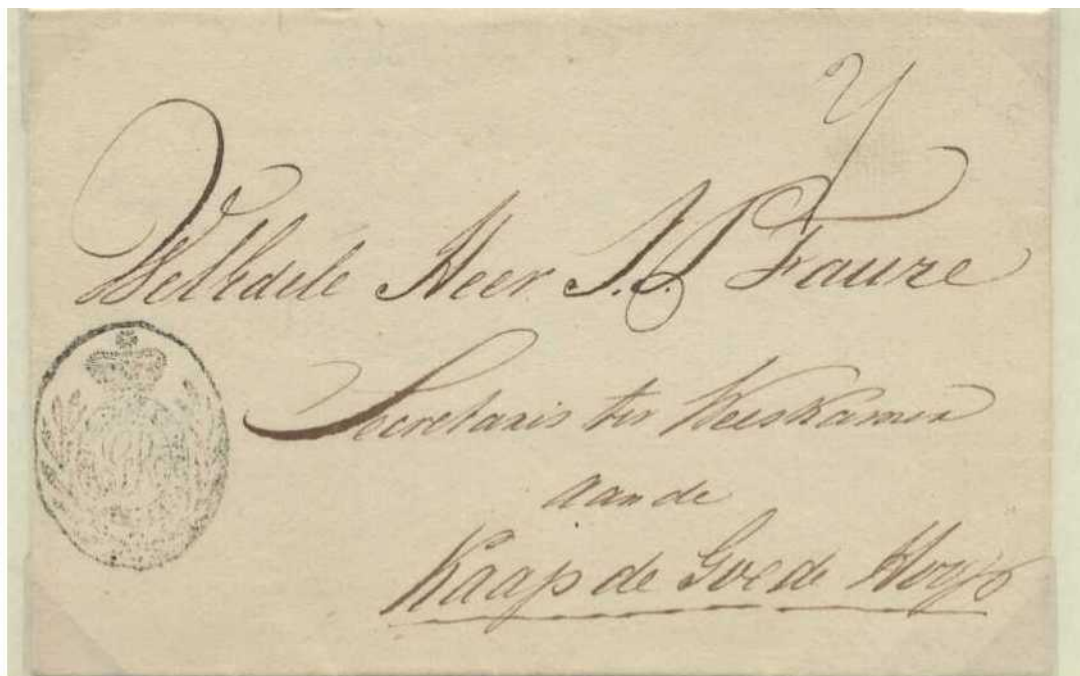 WelEdele Heer J. J. Faure
Secretaris ter Weeskamer
aan de
Kaap de Goede Hoop